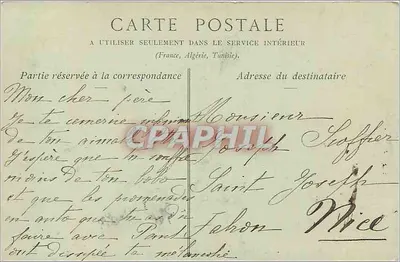 CARTE POSTALE
A UTILISER SEULEMENT DANS LE SERVICE INTÉRIEUR
(France, Algérie, Tunisie).
Partie réservée à la correspondance
Adresse du destinataire
Mon cher père
Je te remercie infiniment
de ton aimable
J'espère que tu souffres
moins de ton bobo
et que les promenades
en auto que tu as dû
faire avec
ont dissipé ta mélancolie
Monsieur
Joseph
Saint Joseph
Fabron
Nice
CPAPHIL